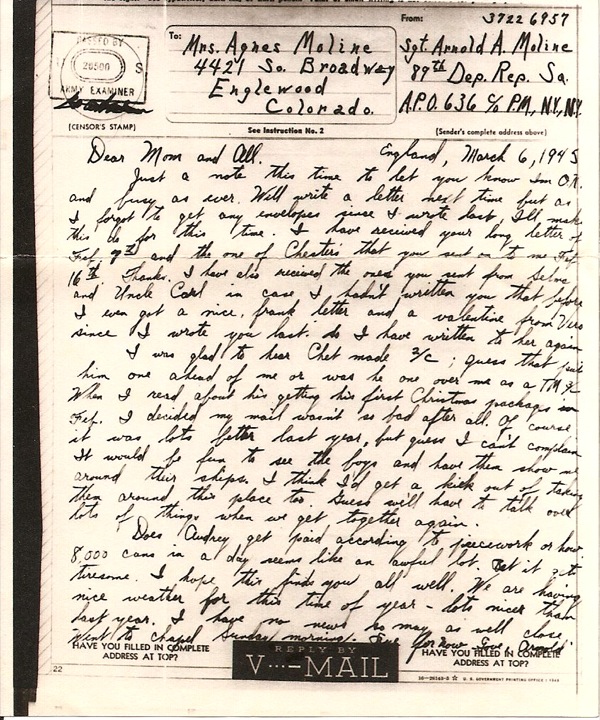 From: 37226957
PASSED BY
To: Mrs. Agnes Moline Sgt. Arnold A. Moline
S
4427 So. Broadway 89th Dep. Rep. Sq.
ARMY EXAMINER
Englewood
Colorado. A.P.O. 636 c/o P.M., N.Y., N.Y.
(CENSOR'S STAMP) See Instruction No. 2 (Sender's complete address above)
Dear Mom and All. England, March 6, 1945
Just a note this time to let you know Im O.K.
and busy as ever. Will write a letter next time but as
I forgot to get any envelopes since I wrote last, I'll make
this do for this time. I have received your long letter of
Feb. and the one of Chester's that you sent on to me Feb
16th. Thanks. I have also received the ones you sent from Selma
and Uncle Carl in case I hadn't written you that before
I even got a nice, frank letter and a valentine from Vera
since I wrote you last. So I have written to her again
I was glad to hear Chet made 2/c; guess that puts
him one ahead of me or was he one over me as a TM 3/c
When I read about his getting his first Christmas packages in
Feb. I decided my mail wasn't so bad after all. Of course
it was lots better last year, but guess I can't complain
It would be fun to see the boys and have them show me
around their ships. I think I'd get a kick out of taking
them around this place too. Guess we'll have to talk over
lots of things when we get together again.
Does Audrey get paid according to piecework or how
8,000 cans in a day seems like an awful lot. Bet it gets
tiresome. I hope this finds you all well. We are having
nice weather for this time of year - lots nicer than
last year. I have no news so may as well close
Went to chapel Sunday morning. for now Love Arnold
HAVE YOU FILLED IN COMPLETE ADDRESS AT TOP?
REPLY BY
V···-MAIL
HAVE YOU FILLED IN COMPLETE ADDRESS AT TOP?
22
U. S. GOVERNMENT PRINTING OFFICE